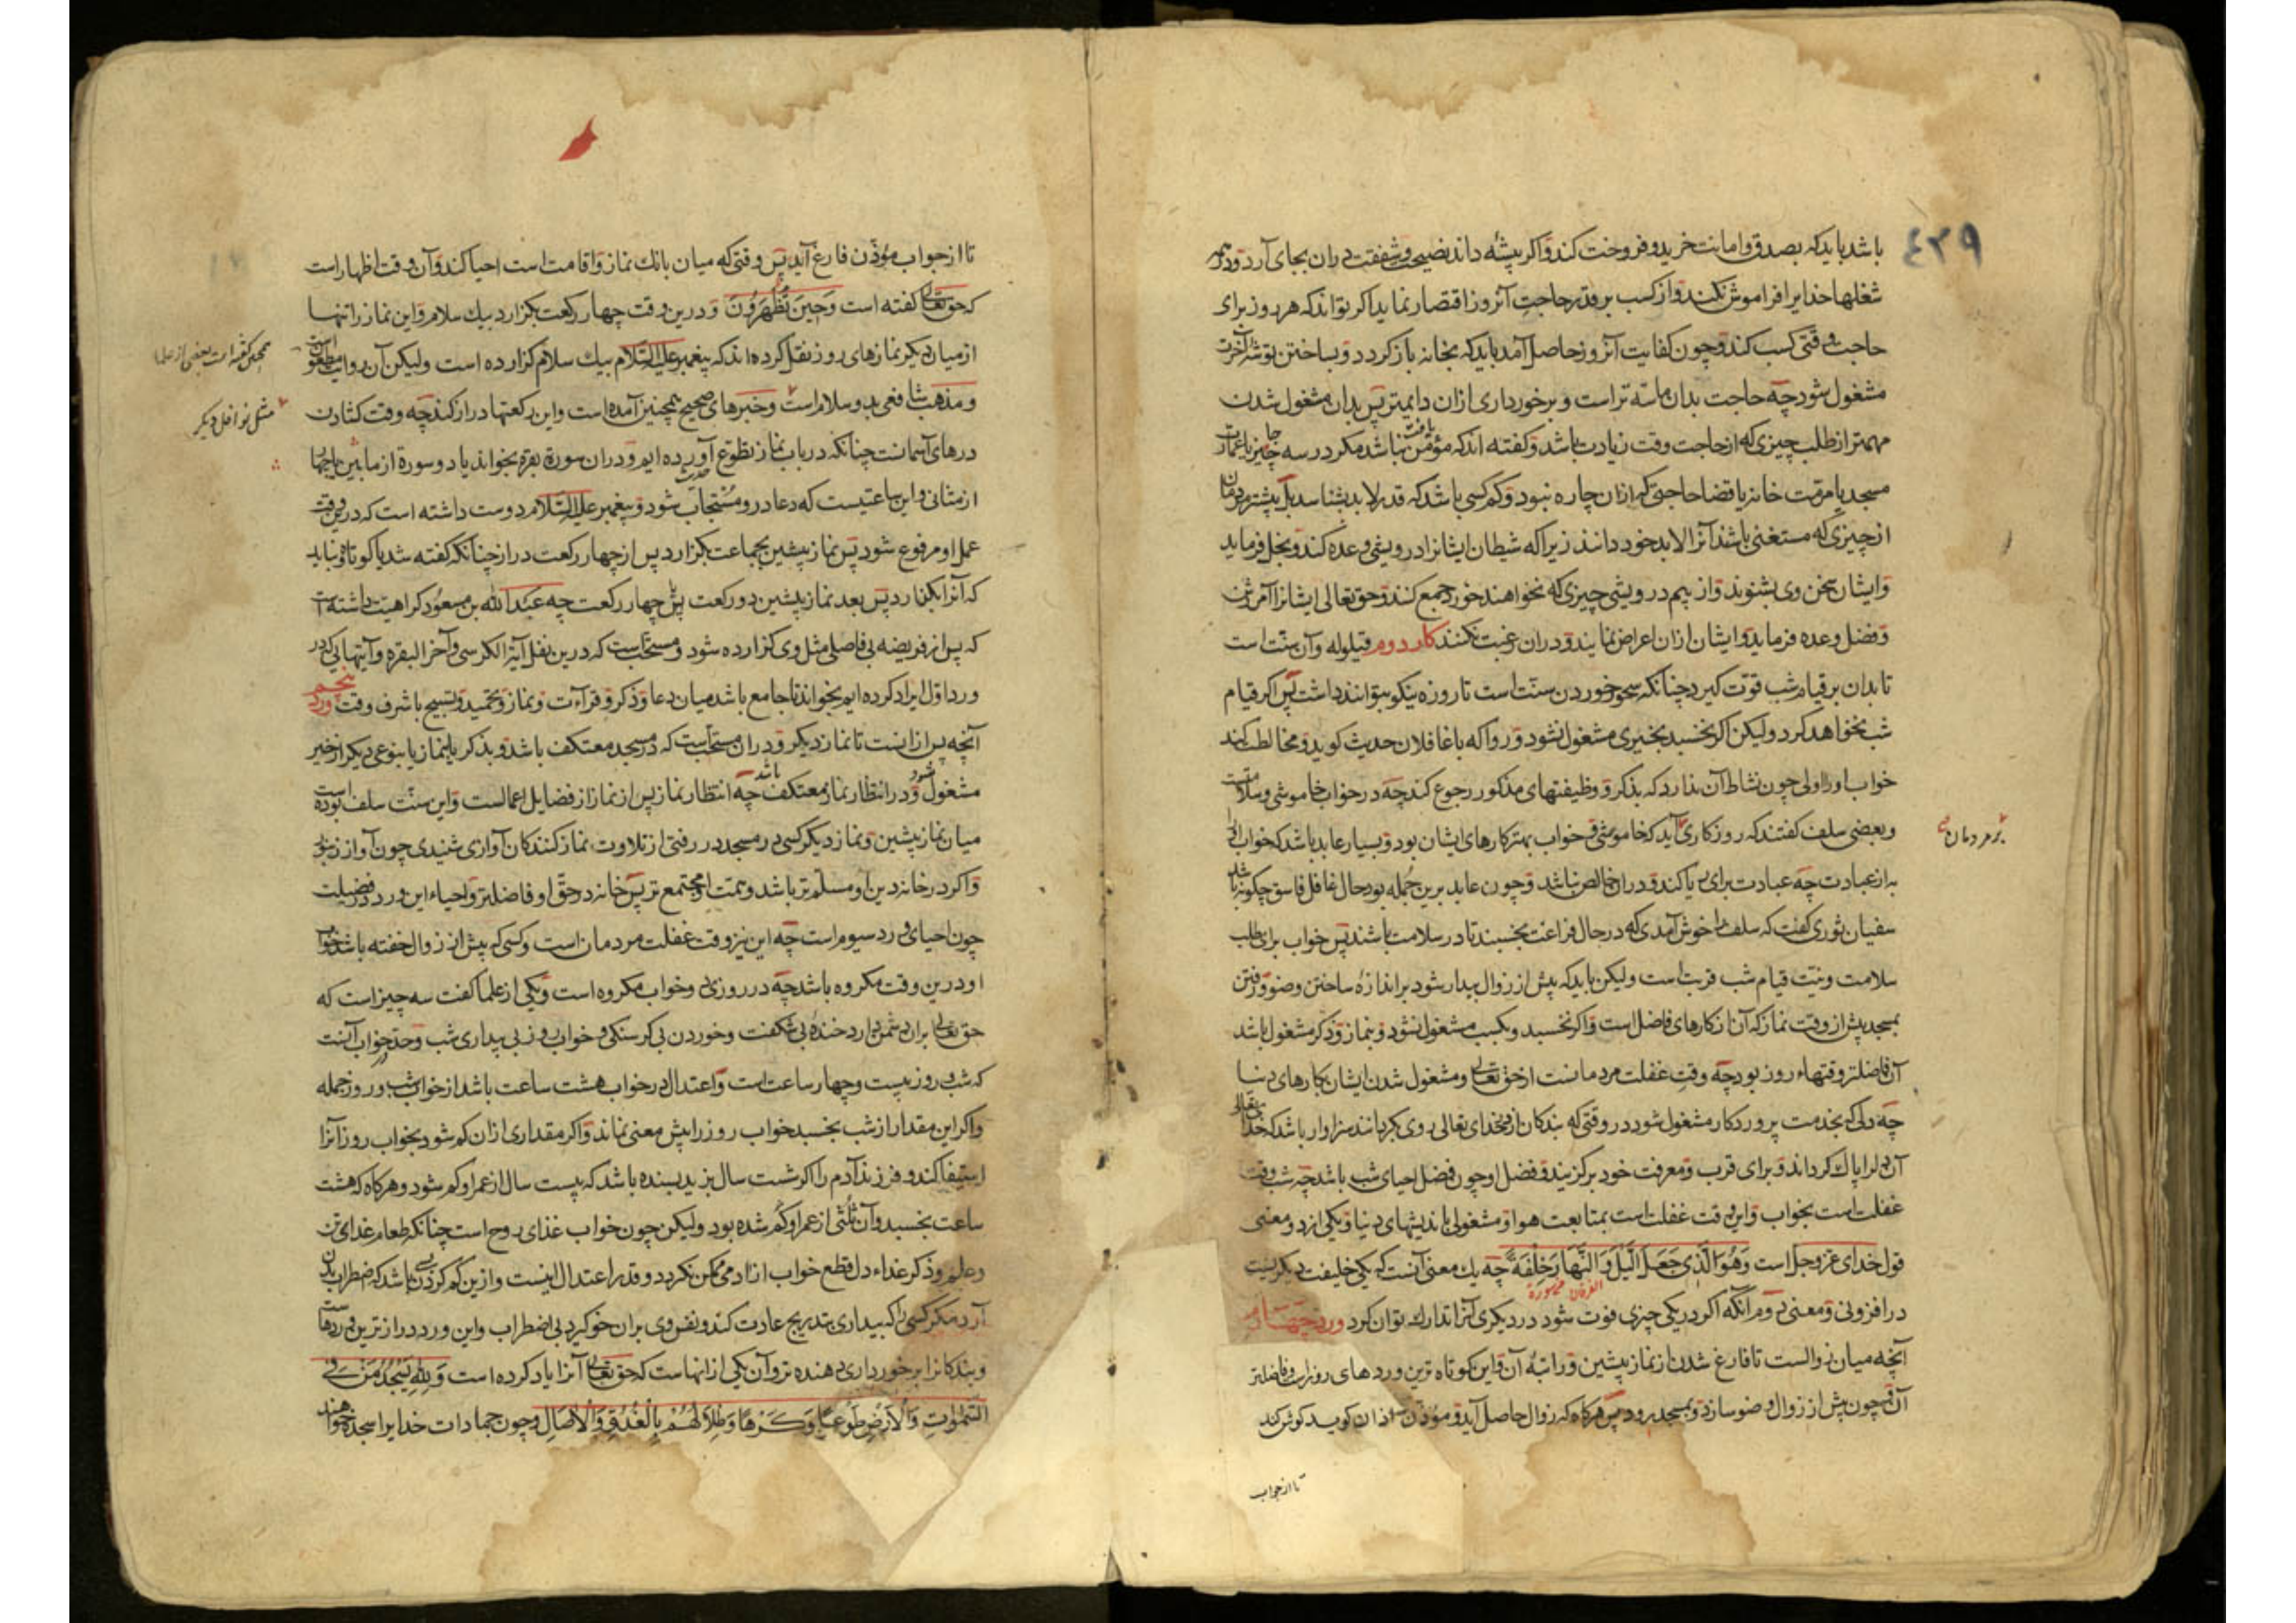 ٤٣٩
باشد باید که بصدق و امانت خرید و فروخت کند و اکر پیشه داند نصیحت و شفقت دران بجای آرد و در همه
شغلها خدایرا فراموش نکند و از کسب بر قدر حاجت آنروز اقتصار نماید اکر تواند که هر روز برای
حاجت وقتی کسب کند و چون کفایت آنروز حاصل آمد باید که بخانه باز کردد و بساختن توشه آخرت
مشغول شود چه حاجت بدان ماسه تر است و برخورداری ازان دایمتر پس بدان مشغول شدن
مهمتر از طلب چیزی که از حاجت وقت زیادت باشد و کفته اند که مؤمن یافت نباشد مکر در سه جا چیز یا عمارت
مسجد یا مرمت خانه یا قضا حاجتی که ازان چاره نبود و کم کسی باشد که قدر لابد بشناسد بل بیشتر مردمان
از چیزی که مستغنی باشند آنرا لابد خود دانند زیرا که شیطان ایشانرا درویشی وعده کند و بخل فرماید
و ایشان سخن وی بشنوند و از بیم درویشی چیزی که نخواهند خورد جمع کنند و حق تعالی ایشانرا آمرزش
و فضل وعده فرماید و ایشان ازان اعراض نمایند و دران رغبت نکنند کار دوم قیلوله و آن سنت است
تا بدان بر قیام شب قوت کیرد چنانکه سحور خوردن سنت است تا روزه نیکو بتوانند داشت پس اکر قیام
شب نخواهد کرد ولیکن اکر نخسبد بخیری مشغول نشود و روا که با غافلان حدیث کوید و مخالطت کند
خواب اورا اولی چون نشاط آن ندارد که بذکر و وظیفتهای مذکور رجوع کند چه در خواب خاموشی و سلامتست
و بعضی سلف کفتند که روزکاری آید که خاموشی و خواب بهتر کارهای ایشان بود و بسیار عابد باشد که خواب او
بر مردمان
به از عبادت چه عبادت برای ریا کند و دران خالص نباشد و چون عابد برین جمله بود حال غافل فاسق چکونه باشد
سفیان ثوری کفت که سلف را خوش آمدی که در حال فراغت بخسبند تا در سلامت باشند پس خواب برای طلب
سلامت و نیت قیام شب قربت است ولیکن باید که پیش از زوال بیدار شود بر اندازهٔ ساختن وضو و رفتن
بمسجد پیش از وقت نماز که آن از کارهای فاضل است و اکر نخسبد و بکسب مشغول نشود و بنماز و ذکر مشغول باشد
آن فاضلتر وقتهاء روز بود چه وقت غفلت مردمانست از حق تعالی و مشغول شدن ایشان بکارهای دنیا
چه دلی که بخدمت پروردکار مشغول شود در وقتی که بندکان از خدای تعالی روی بکردانند سزاوار باشد که خدای تعالی
آن دلرا پاک کرداند و برای قرب و معرفت خود برکزیند و فضل او چون فضل احیای شب باشد چه شب وقت
غفلت است بخواب و این وقت غفلت است بمتابعت هوا و مشغولی باندیشهای دنیا و یکی از دو معنی
قول خدای عز و جل است وَهُوَ الَّذِي جَعَلَ الَّيْلَ وَالنَّهَارَ خِلْفَةً چه یک معنی آنست که یکی خلیفت دیکریست
الفرقان سورة
در افزونی و معنی دوم آنکه اکر در یکی چیزی فوت شود در دیکری آنرا تدارک توان کرد ورد چهارم
آنچه میان زوالست تا فارغ شدن از نماز پیشین و راتبهٔ آن و این کوتاه ترین وردهای روزست و فاضلتر
آن و چون پیش از زوال وضو سازد و بمسجد رود پس هرکاه که زوال حاصل آید و مؤذن اذان کوید کوش کند
تا از جواب
تا از جواب مؤذن فارغ آید پس وقتی که میان بانک نماز و اقامت است احیا کند و آن وقت اظهار است
که حق تعالی کفته است وَحِينَ تُظْهِرُونَ و درین وقت چهار رکعت بکزارد بیک سلام و این نماز را تنها
از میان دیکر نمازهای روز نقل کرده اند که پیغمبر علیه السلام بیک سلام کزارده است ولیکن آن روایت مطعون است
همچنین کفته است بعضی از علما
و مذهب شافعی بدو سلام است و خبرهای صحیح همچنین آمده است و این رکعتها دراز کند چه وقت کشادن
مثل نوافل دیکر
درهای آسمانست چنانکه در باب نماز تطوع آورده ایم و دران سورة بقره بخواند یا دو سورة از مائین یا چهار
از مثانی و این ساعتیست که دعا درو مستجاب شود و پیغمبر علیه السلام دوست داشته است که درین وقت
عمل او مرفوع شود پس نماز پیشین بجماعت بکزارد پس از چهار رکعت دراز چنانکه کفته شد یا کوتاه و نباید
که آنرا بکذارد پس بعد نماز پیشین دو رکعت پس چهار رکعت چه عبد الله بن مسعود کراهیت داشته است
که پس از فریضه بی فاصلی مثل وی کزارده شود و مستحب است که درین نفل آیة الکرسی و آخر البقره و آیتهایی که در
ورد اول ایراد کرده ایم بخواند تا جامع باشد میان دعا و ذکر و قرآءت و نماز و تحمید و تسبیح با شرف وقت ورد پنجم
آنچه پس ازانست تا نماز دیکر و دران مستحب است که در مسجد معتکف باشد و بذکر یا بنماز یا بنوعی دیکر از خیر
مشغول شود و در انتظار نماز معتکف باشد چه انتظار نماز پس از نماز از فضایل اعمالست و این سنت سلف بوده است
میان نماز پیشین و نماز دیکر کسی در مسجد در رفتی از تلاوت نماز کنندکان آوازی شنیدی چون آواز زنبور
و اکر در خانه دین او مسلم تر باشد و همت او مجتمع تر پس خانه در حق او فاضلتر و احیاء این ورد در فضیلت
چون احیای ورد سیوم است چه این نیز وقت غفلت مردمان است و کسی که پیش از زوال خفته باشد خواب
او درین وقت مکروه باشد چه در روزی دو خواب مکروه است و یکی از علما کفت سه چیز است که
حق تعالی بران دشمن دارد خندهٔ بی شکفت و خوردن بی کرسنکی و خواب روز بی بیداری شب و حد خواب آنست
که شب و روز بیست و چهار ساعت است و اعتدال در خواب هشت ساعت باشد از خواب شب و روز جمله
و اکر این مقدار از شب بخسبد خواب روز را بیش معنی نماند و اکر مقداری ازان کم شود بخواب روز آنرا
استیفا کند و فرزند آدم را اکر شست سال بزید بسنده باشد که بیست سال از عمر او کم شود و هرکاه که هشت
ساعت بخسبد و آن ثلثی از عمر او کم شده بود ولیکن چون خواب غذای روح است چنانکه طعام غذای تن
و علم و ذکر غذاء دل قطع خواب از آدمی ممکن نکردد و قدر اعتدال اینست و ازین کم کردن باشد که اضطراب بدن
آرد مکر کسی را که بیداری بتدریج عادت کند و نفس وی بران خو کیرد بی اضطراب و این ورد دراز ترین وردهاست
و بندکانرا برخورداری دهنده تر و آن یکی ازانهاست که حق تعالی آنرا یاد کرده است وَلِلَّهِ يَسْجُدُ مَنْ فِي
السَّمٰوَاتِ وَالْأَرْضِ طَوْعًا وَكَرْهًا وَظِلَالُهُمْ بِالْغُدُوِّ وَالْآصَالِ و چون جمادات خدایرا سجده خواهند